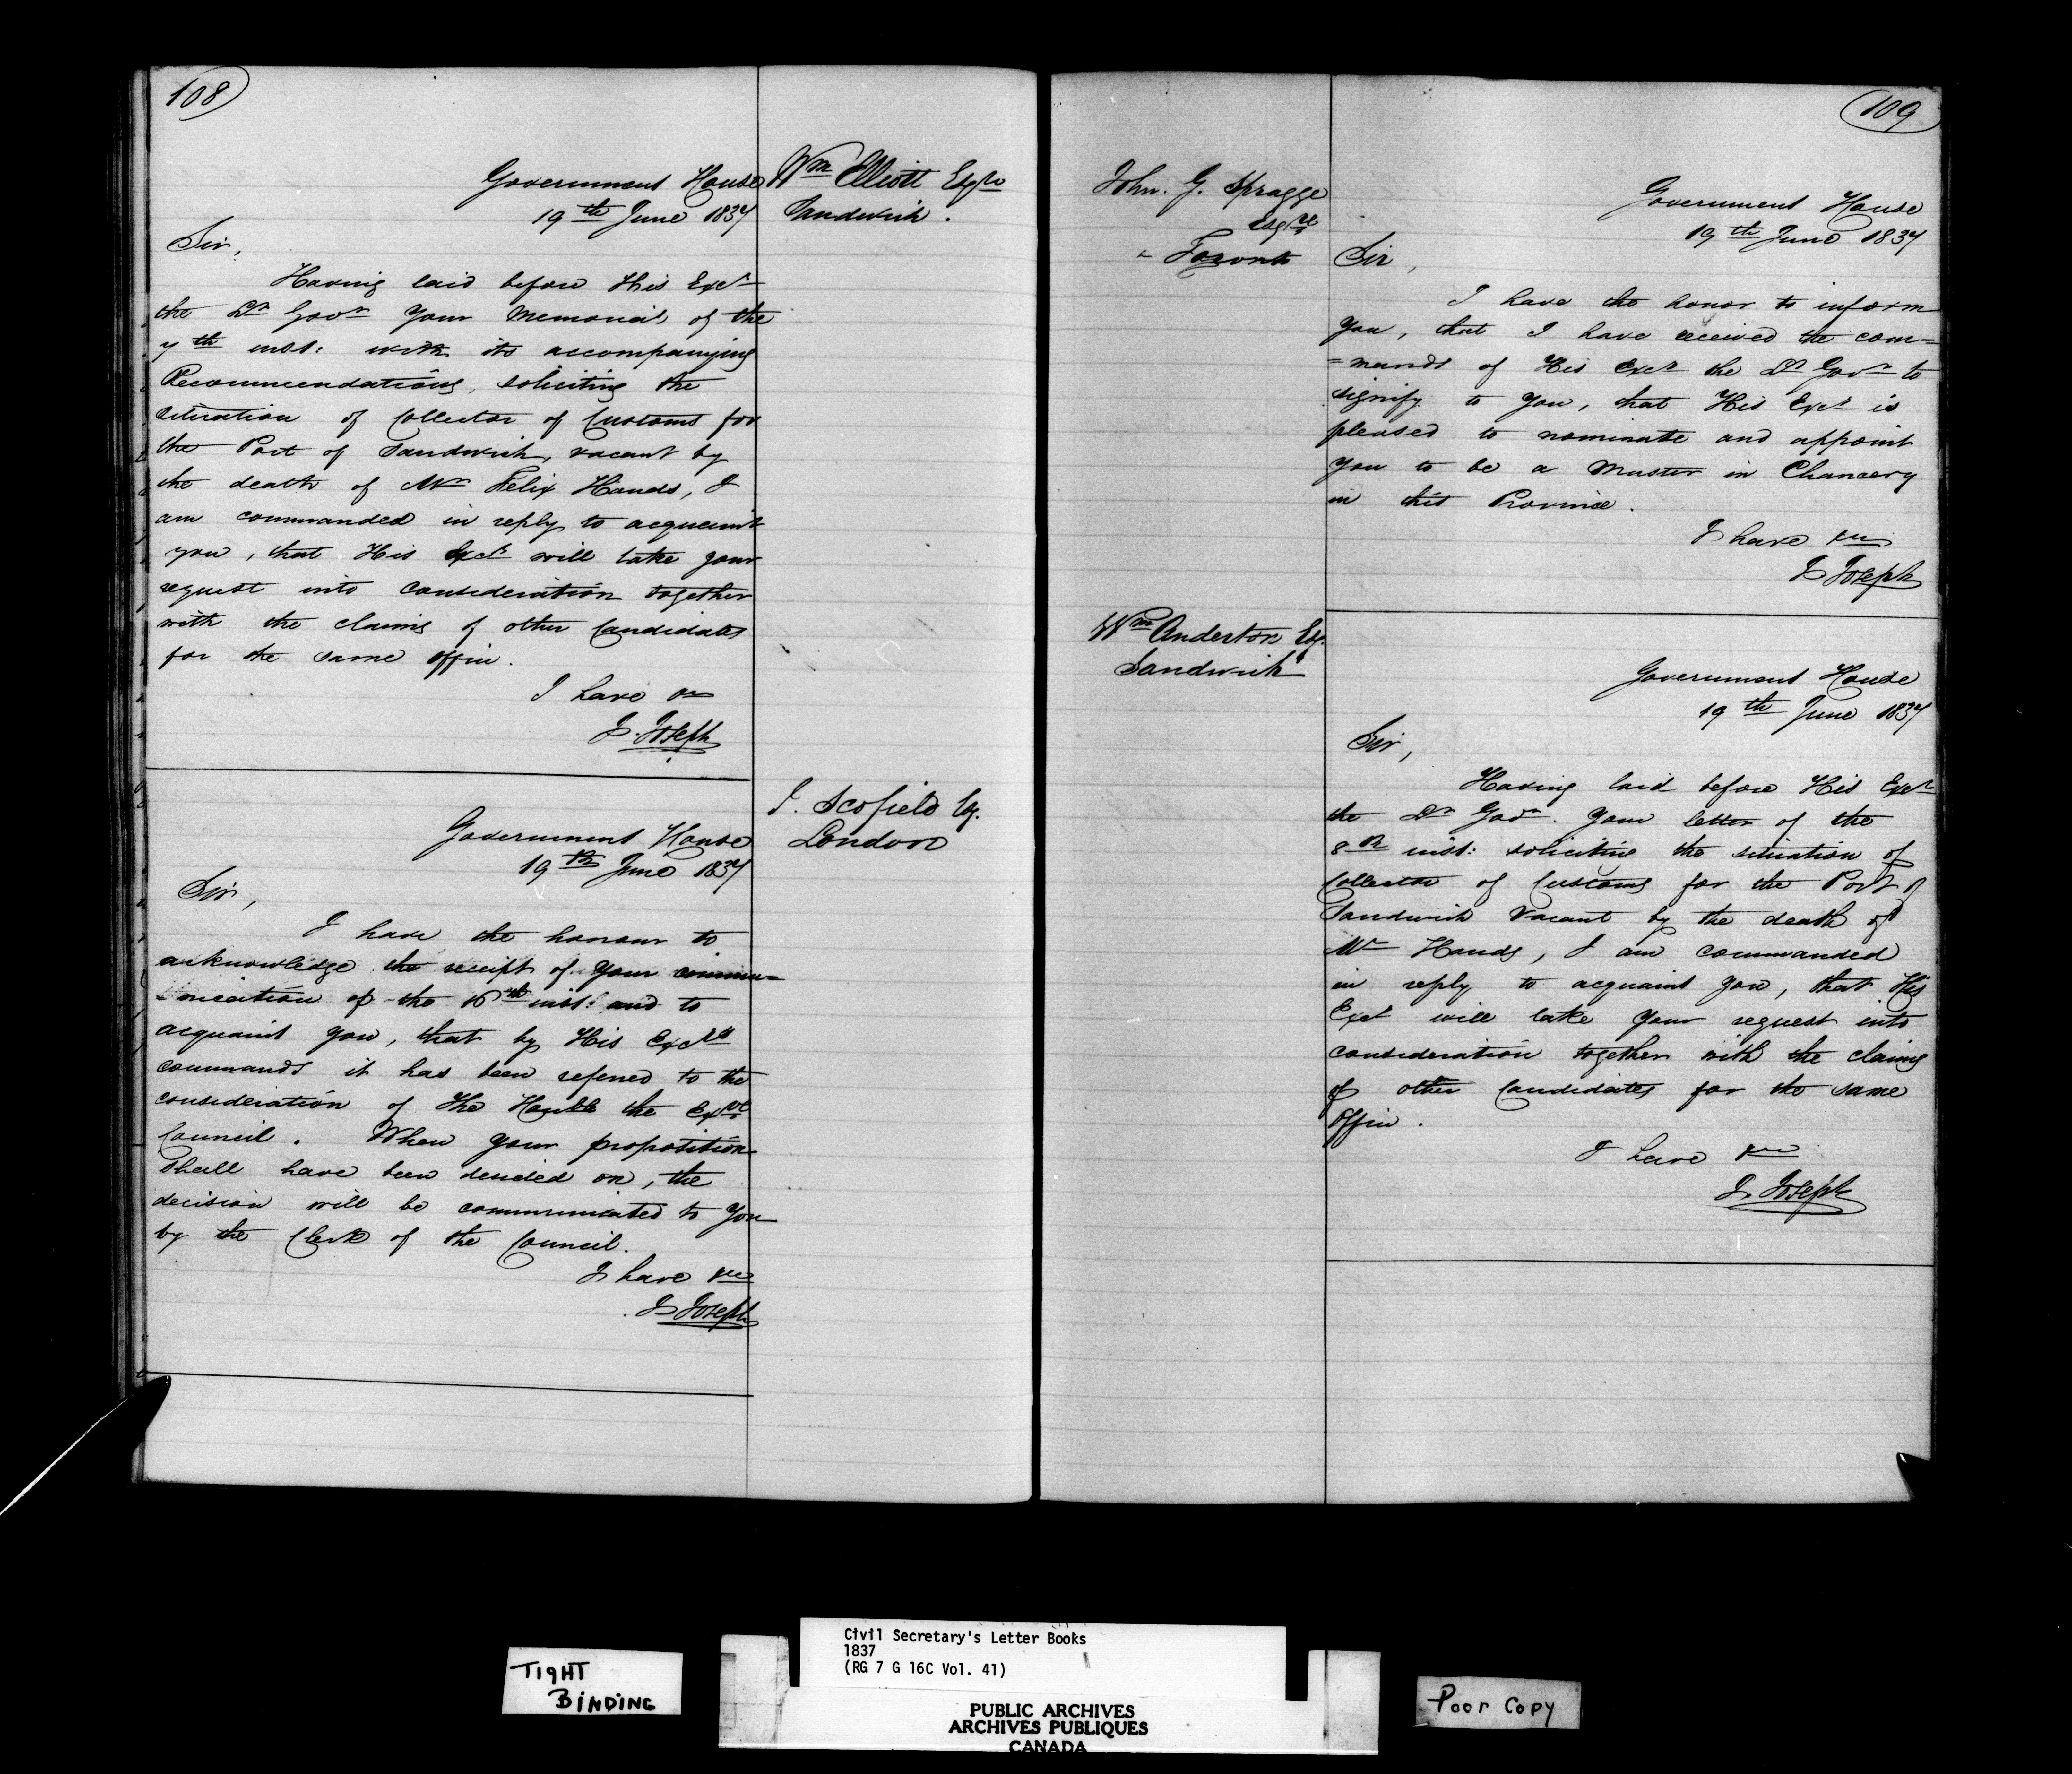 108
Wm Elliott Esqre
Sandwich.
Government House
19th June 1837
Sir,
Having laid before His Excy
the Lt Govr your Memorial of the
7th inst: with its accompanying
Recommendations, soliciting the
situation of Collector of Customs for
the Port of Sandwich, vacant by
the death of Mr Felix Hands, I
am commanded in reply to acquaint
you, that His Excy will take your
request into consideration together
with the claims of other Candidates
for the same office.
I have &c
J. Joseph
J. Scofield Esq.
London
Government House
19th June 1837
Sir,
I have the honour to
acknowledge the receipt of your commu=
=nication of the 16th inst: and to
acquaint you, that by His Excy's
commands it has been referred to the
consideration of the Honble the Exve
Council. When your proposition
shall have been decided on, the
decision will be communicated to you
by the Clerk of the Council.
I have &c
J Joseph
109
John. G. Spragge
Esqre
Toronto
Government House
19th June 1837
Sir,
I have the honor to inform
you, that I have received the com=
=mands of His Excy the Lt Govr to
signify to you, that His Excy is
pleased to nominate and appoint
you to be a Master in Chancery
in this Province.
I have &c
J Joseph
Wm Anderton Esq.
Sandwich
Government House
19th June 1837
Sir,
Having laid before His Excy
the Lt Govr. your letter of the
8th inst: soliciting the situation of
Collector of Customs for the Port of
Sandwich vacant by the death of
Mr Hands, I am commanded
in reply to acquaint you, that His
Excy will take your request into
consideration together with the claims
of other Candidates for the same
office.
I have &c
J. Joseph
TIGHT
BINDING
Civil Secretary's Letter Books
1837
(RG 7 G 16C Vol. 41)
PUBLIC ARCHIVES
ARCHIVES PUBLIQUES
CANADA
Poor Copy